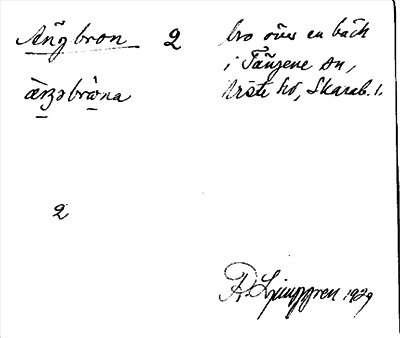 Ängbron 2
bro över en bäck
i Tängene sn,
Åröste hd, Skarab. l.
ærŋəbròna
2
R. Ljunggren 1929